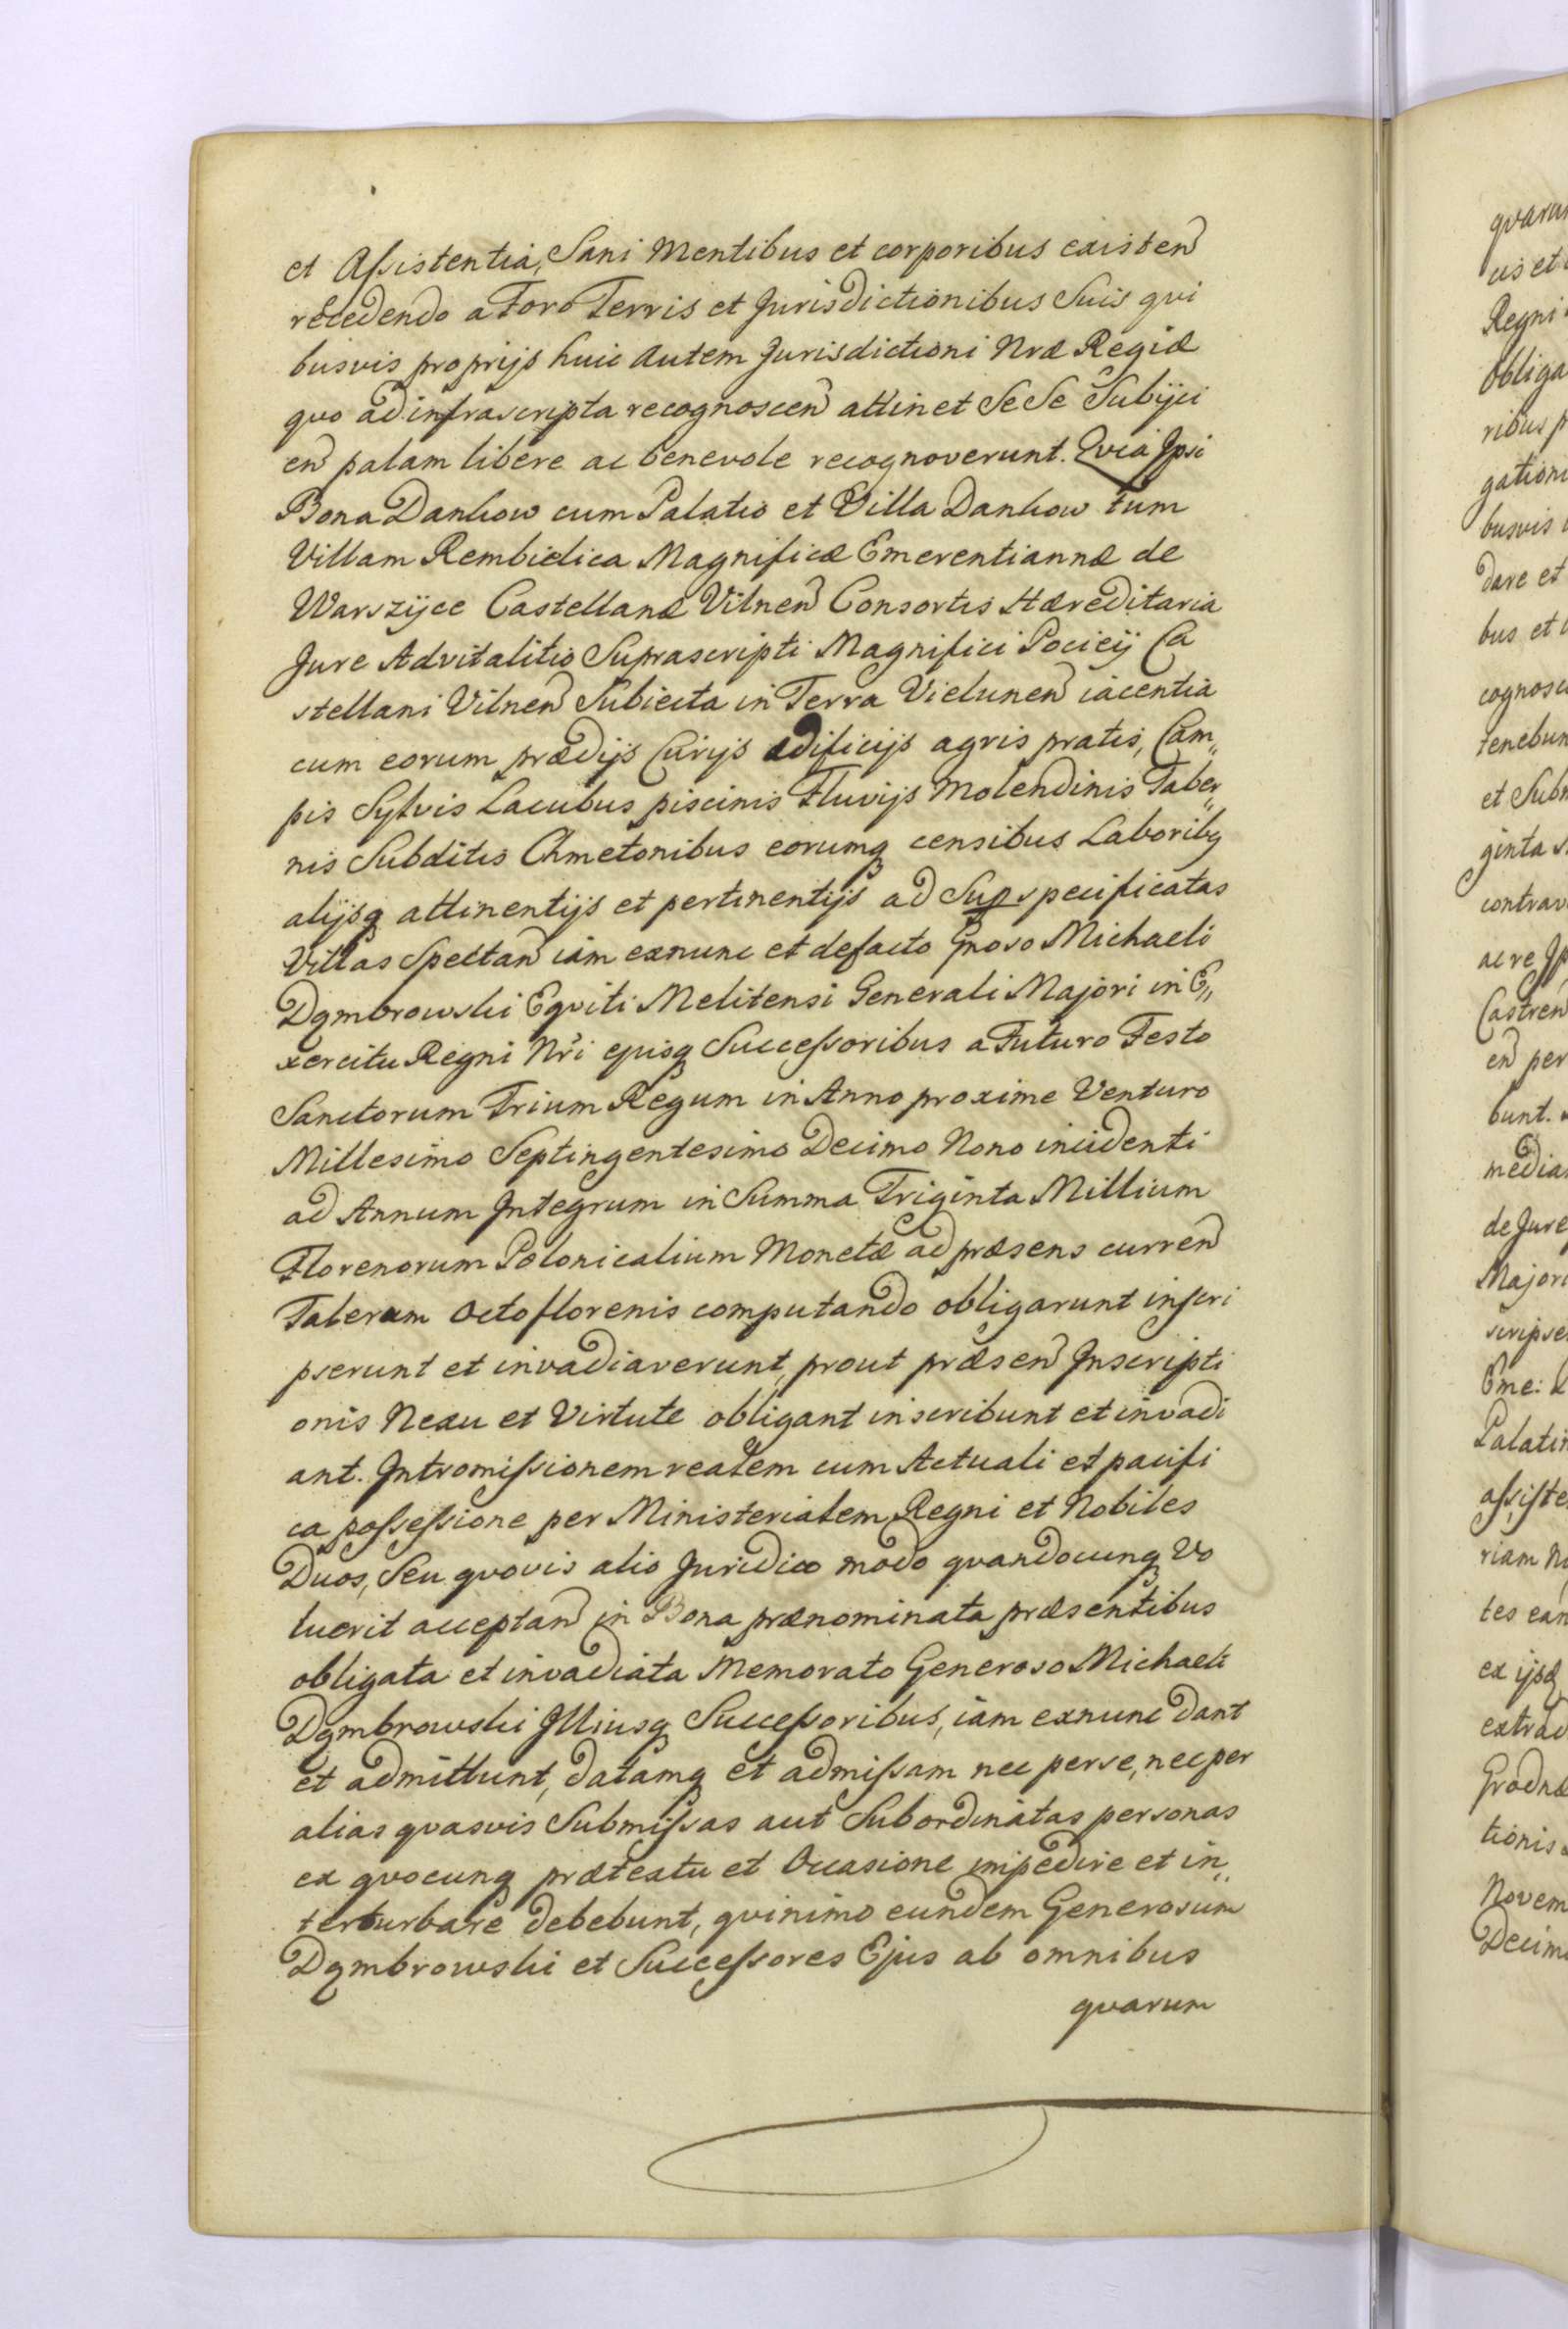 et Aſsistentia, Sani Mentibus et corporibus existen
recedendo a Foro Terris et Jurisdictionibus Suis qui
busvis proprijs huic autem Jurisdictioni Nræ Regiæ
quo ad infrascripta recognoscen attinet SeSe Subijci
en palam libere ac benevole recognoverunt. Qvia Ipsi
Bona Dankow cum Palatio et Villa Dankow tum
Villam Rembielica Magnificæ Emerentiannæ de
Warszÿce Castellanæ Vilnen Consortis Hæreditaria
Jure Advitalitio Suprascripti Magnifici Pociey Ca
stellani Vilnen Subiecta in Terra Vielunen iacentia
cum eorum prædijs Curijs ædificijs agris pratis, Cam„
pis Sylvis Lacubus piscinis Fluvijs Molendinis Taber„
nis Subditis Chmetonibus eorumq censibus Laboribq
alijsq attinentijs et pertinentijs ad Supspecificatas
Villas Spectan iam exnunc et defacto Gnoso Michaeli
Dąmbrowski Eqviti Melitensi Generali Majori in E„
xercitu Regni Nri ejusq Succeſsoribus a Futuro Festo
Sanctorum Trium Regum in Anno proxime Venturo
Millesimo Septingentesimo Decimo Nono incidenti
ad Annum Integrum in Summa Triginta Millium
Florenorum Polonicalium Monetæ ad præsens curren
Talerum Octo florenis computando obligarunt inscri
pserunt et invadiaverunt, prout præsen Inscripti
onis Nexu et Virtute obligant inscribunt et invadi
ant. Intromiſsionem realem cum Actuali et pacifi
ca poſseſsione per Ministerialem Regni et Nobiles
Duos, Seu qvovis alio Juridico modo qvandocunq Vo
luerit acceptan in Bona prænominata præsentibus
obligata et invadiata Memorato Generoso Michaeli
Dąmbrowski Illiusq Succeſsoribus, iam exnunc dant
et admittunt, datamq et admiſsam nec perse, nec per
alias qvasvis Submiſsas aut Subordinatas personas
ex qvocunq prætextu et Occasione impedire et in„
terturbare debebunt, qvinimo eundem Generosum
Dąmbrowski et Succeſsores Ejus ab omnibus
qvarum